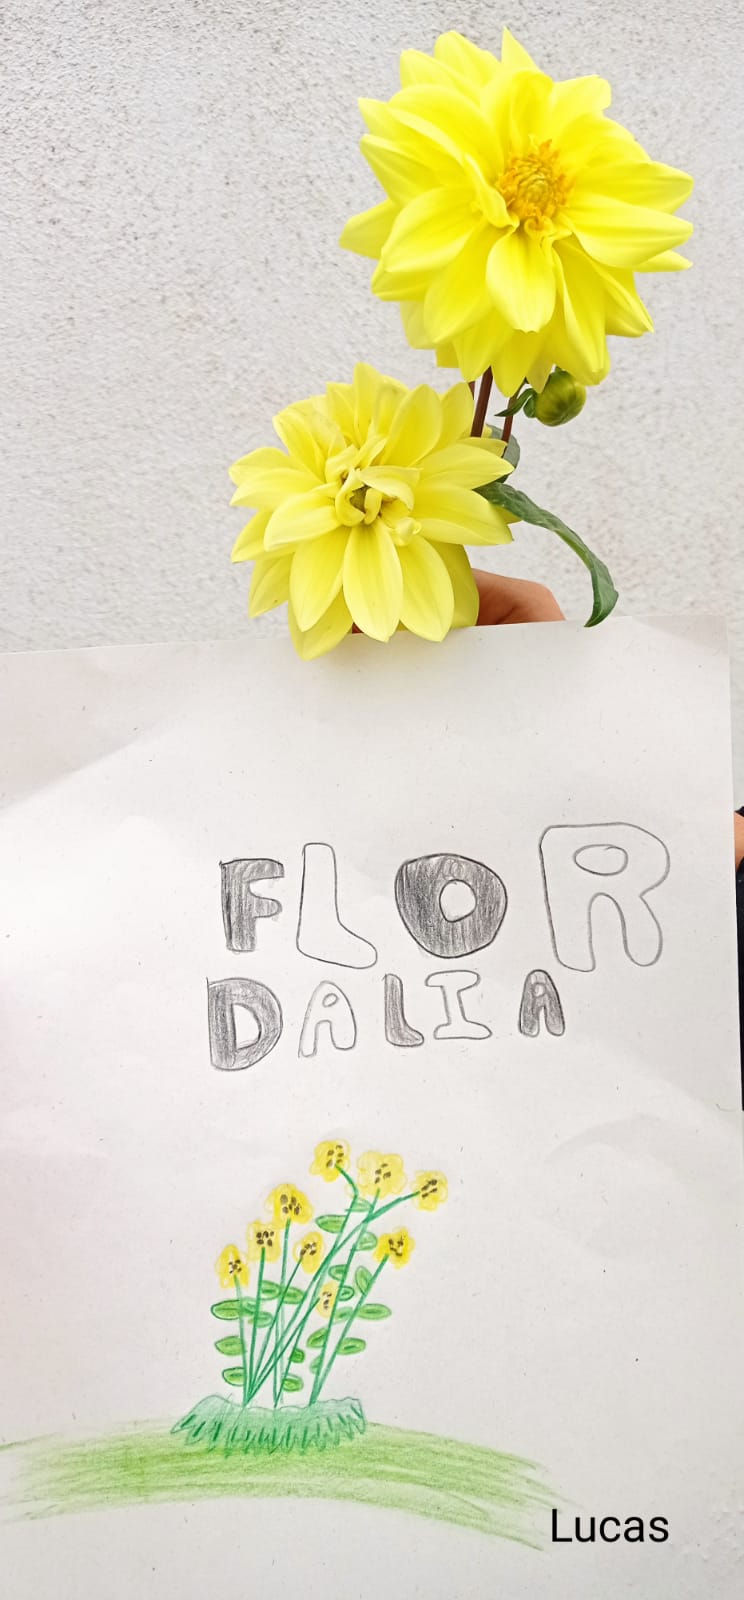 FLOR
DALIA
Lucas